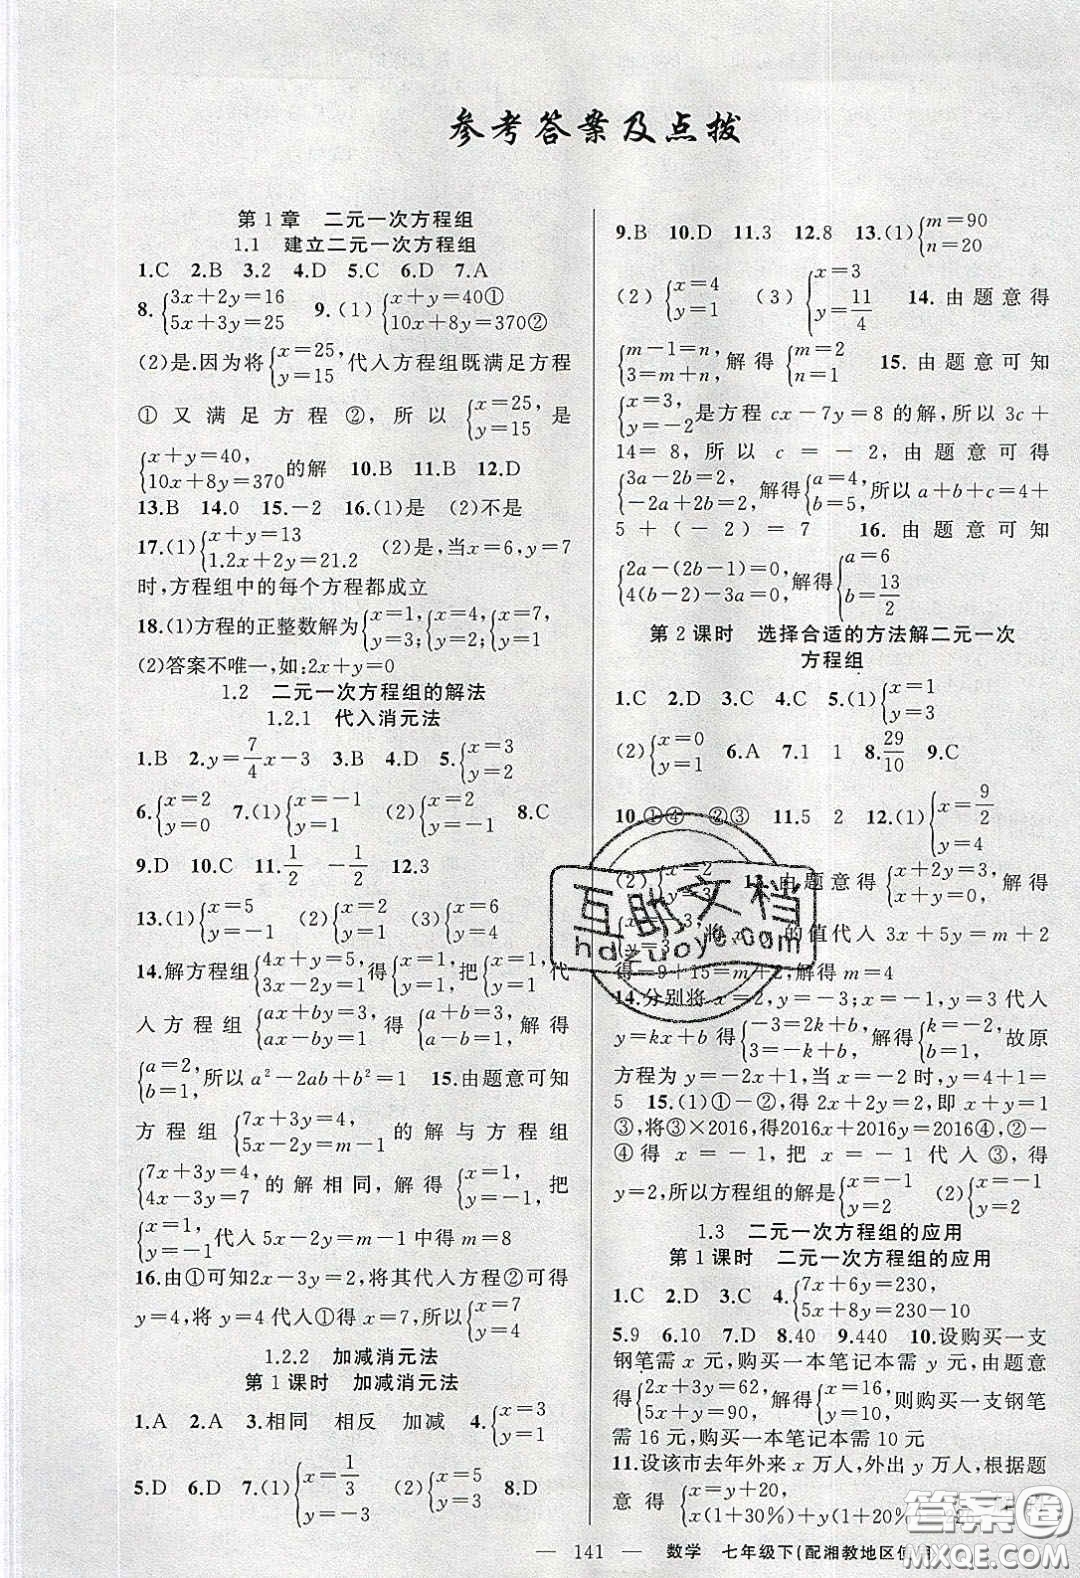 参考答案及点拨
第1章 二元一次方程组
1.1 建立二元一次方程组
1.C 2.B 3.2 4.D 5.C 6.D 7.A
8.{3x+2y=16 5x+3y=25 9.(1){x+y=40① 10x+8y=370②
(2)是.因为将{x=25, y=15 代入方程组既满足方程
①又满足方程②,所以{x=25, y=15 是
{x+y=40, 10x+8y=370 的解 10.B 11.B 12.D
13.B 14.0 15.-2 16.(1)是 (2)不是
17.(1){x+y=13 1.2x+2y=21.2 (2)是,当x=6,y=7
时,方程组中的每个方程都成立
18.(1)方程的正整数解为{x=1, y=3; {x=4, y=2; {x=7, y=1
(2)答案不唯一,如:2x+y=0
1.2 二元一次方程组的解法
1.2.1 代入消元法
1.B 2.y=7/4x-3 3.B 4.D 5.{x=3 y=2
6.{x=2 y=0 7.(1){x=-1 y=1 (2){x=2 y=-1 8.C
9.D 10.C 11.1/2 -1/2 12.3
13.(1){x=5 y=-1 (2){x=2 y=1 (3){x=6 y=4
14.解方程组{4x+y=5, 3x-2y=1 得{x=1, y=1, 把{x=1, y=1 代
入方程组{ax+by=3, ax-by=1 得{a+b=3, a-b=1, 解得
{a=2, b=1, 所以a²-2ab+b²=1 15.由题意可知
方程组{7x+3y=4, 5x-2y=m-1 的解与方程组
{7x+3y=4, 4x-3y=7 的解相同,解得{x=1, y=-1, 把
{x=1, y=-1 代入5x-2y=m-1中得m=8
16.由①可知2x-3y=2,将其代入方程②可得
y=4,将y=4代入①得x=7,所以{x=7 y=4
1.2.2 加减消元法
第1课时 加减消元法
1.A 2.A 3.相同 相反 加减 4.{x=3 y=1
5.D 6.D 7.(1){x=1/3 y=-3 (2){x=3 y=-1 8.D
9.B 10.D 11.3 12.8 13.(1){m=90 n=20
(2){x=4 y=1 (3){x=3 y=11/4 14.由题意得
{m-1=n, 3=m+n, 解得{m=2 n=1 15.由题意可知
{x=3, y=-2 是方程cx-7y=8的解,所以3c+
14=8,所以c=-2,由题意可得
{3a-2b=2, -2a+2b=2, 解得{a=4, b=5, 所以a+b+c=4+
5+(-2)=7 16.由题意可知
{2a-(2b-1)=0, 4(b-2)-3a=0, 解得{a=6 b=13/2
第2课时 选择合适的方法解二元一次
方程组
1.C 2.D 3.C 4.C 5.(1){x=1 y=3
(2){x=0 y=4 6.A 7.1 1 8.29/10 9.C
10.①④ ②③ 11.5 2 12.(1){x=9/2 y=4
(2){x=2 y=3 13.由题意得{x+2y=3, x+y=0, 解得
{x=-3, y=3, 将x,y的值代入3x+5y=m+2
得-9+15=m+2,解得m=4
14.分别将x=2,y=-3;x=-1,y=3代入
y=kx+b得{-3=2k+b, 3=-k+b, 解得{k=-2, b=1, 故原
方程为y=-2x+1,当x=-2时,y=4+1=
5 15.(1)①-②,得2x+2y=2,即x+y=1
③,将③×2016,得2016x+2016y=2016④,②-
④得x=-1,把x=-1代入③,得
y=2,所以方程组的解是{x=-1 y=2 (2){x=-1 y=2
1.3 二元一次方程组的应用
第1课时 二元一次方程组的应用
1.C 2.D 3.C 4.{7x+6y=230, 5x+8y=230-10
5.9 6.10 7.D 8.40 9.440 10.设购买一支
钢笔需x元,购买一本笔记本需y元,由题意
得{2x+3y=62, 5x+y=90, 解得{x=16, y=10, 则购买一支钢笔
需16元,购买一本笔记本需10元
11.设该市去年外来x万人,外出y万人,根据题
意得{x=y+20, x(1+30%)+y(1+20%
— 141 — 数学 七年级下(配湘教地区使用)
互助文档
hdzuoye.com
答案圈
MXQE.COM